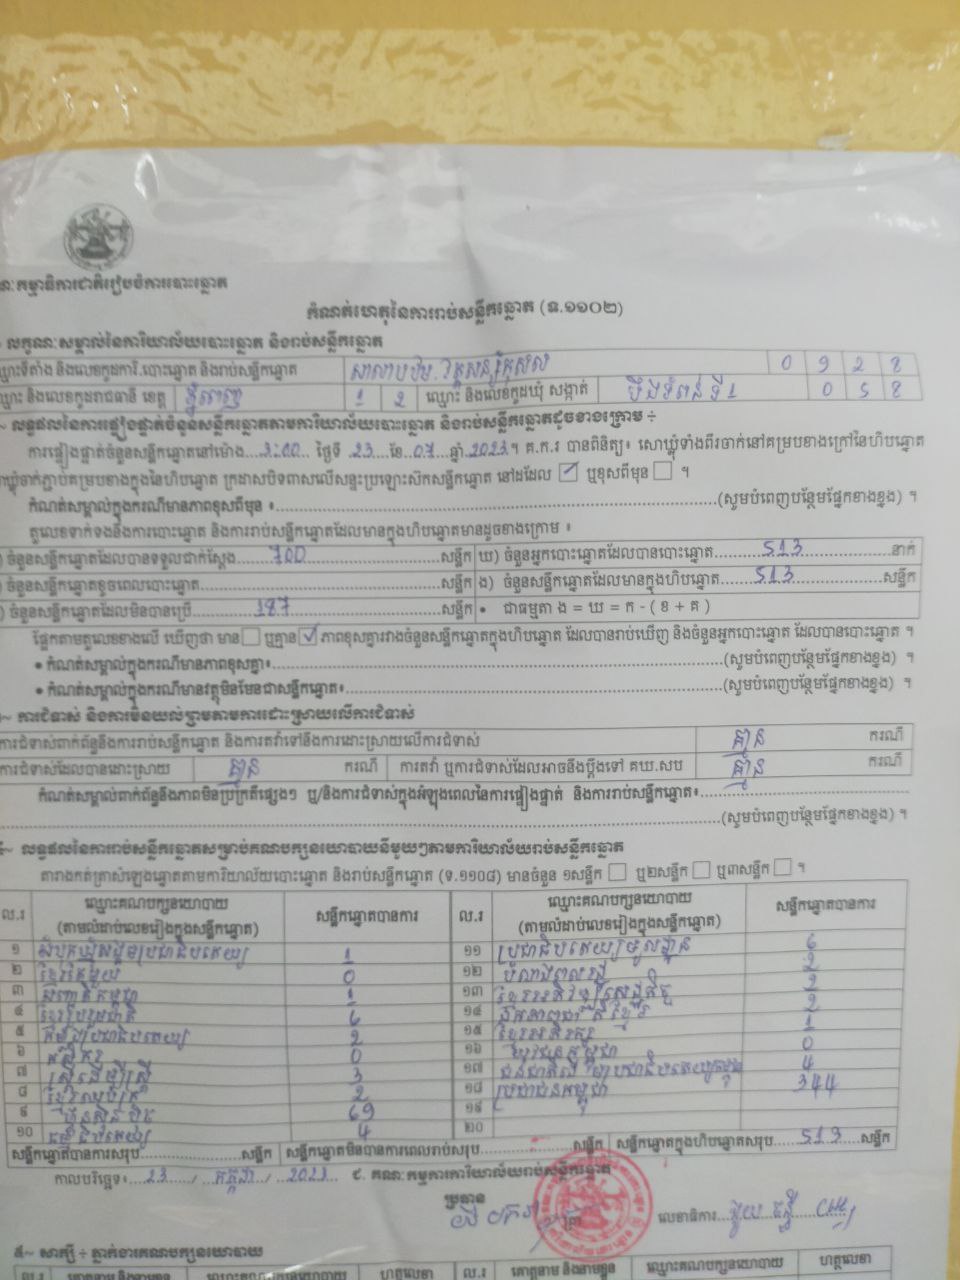 គណៈកម្មាធិការជាតិរៀបចំការបោះឆ្នោត
កំណត់ហេតុនៃការរាប់សន្លឹកឆ្នោត (ទ.១១០២)
លក្ខណៈសម្គាល់នៃការិយាល័យបោះឆ្នោត និងរាប់សន្លឹកឆ្នោត
ឈ្មោះទីតាំង និងលេខកូដការិ.បោះឆ្នោត និងរាប់សន្លឹកឆ្នោត 0 9 2 8
ឈ្មោះ និងលេខកូដរាជធានី ខេត្ត ភ្នំពេញ 1 2 ឈ្មោះ និងលេខកូដឃុំ សង្កាត់ បឹងទំពន់ទី1 0 5 8
លទ្ធផលនៃការផ្ទៀងផ្ទាត់ចំនួនសន្លឹកឆ្នោតតាមការិយាល័យបោះឆ្នោត និងរាប់សន្លឹកឆ្នោតដូចខាងក្រោម ÷
ការផ្ទៀងផ្ទាត់ចំនួនសន្លឹកឆ្នោតនៅម៉ោង 3:00 ថ្ងៃទី 23 ខែ 07 ឆ្នាំ 2023។ គ.ក.រ បានពិនិត្យ៖ សោឃ្លុំទាំងពីរចាក់នៅគម្របខាងក្រៅនៃហិបឆ្នោត
សោឃ្លុំចាក់ភ្ជាប់គម្របខាងក្នុងនៃហិបឆ្នោត ក្រដាសបិទពាសលើសន្ទះប្រឡោះស៊កសន្លឹកឆ្នោត នៅដដែល ☑ ឬខុសពីមុន ☐ ។
កំណត់សម្គាល់ក្នុងករណីមានភាពខុសពីមុន ៖ (សូមបំពេញបន្ថែមផ្នែកខាងខ្នង) ។
តួលេខទាក់ទងនឹងការបោះឆ្នោត និងការរាប់សន្លឹកឆ្នោតដែលមានក្នុងហិបឆ្នោតមានដូចខាងក្រោម ៖
) ចំនួនសន្លឹកឆ្នោតដែលបានទទួលជាក់ស្តែង 700 សន្លឹក ឃ) ចំនួនអ្នកបោះឆ្នោតដែលបានបោះឆ្នោត 513 នាក់
) ចំនួនសន្លឹកឆ្នោតខូចពេលបោះឆ្នោត សន្លឹក ង) ចំនួនសន្លឹកឆ្នោតដែលមានក្នុងហិបឆ្នោត 513 សន្លឹក
) ចំនួនសន្លឹកឆ្នោតដែលមិនបានប្រើ 187 សន្លឹក • ជាធម្មតា ង = ឃ = ក - ( ខ + គ )
ផ្អែកតាមតួលេខខាងលើ ឃើញថា មាន ☐ ឬគ្មាន ☑ ភាពខុសគ្នារវាងចំនួនសន្លឹកឆ្នោតក្នុងហិបឆ្នោត ដែលបានរាប់ឃើញ និងចំនួនអ្នកបោះឆ្នោត ដែលបានបោះឆ្នោត ។
• កំណត់សម្គាល់ក្នុងករណីមានភាពខុសគ្នា៖ (សូមបំពេញបន្ថែមផ្នែកខាងខ្នង) ។
• កំណត់សម្គាល់ក្នុងករណីមានវត្ថុមិនមែនជាសន្លឹកឆ្នោត៖ (សូមបំពេញបន្ថែមផ្នែកខាងខ្នង) ។
~ ការជំទាស់ និងការមិនយល់ព្រមតាមការដោះស្រាយលើការជំទាស់
ការជំទាស់ពាក់ព័ន្ធនឹងការរាប់សន្លឹកឆ្នោត និងការតវ៉ាទៅនឹងការដោះស្រាយលើការជំទាស់ គ្មាន ករណី
ការជំទាស់ដែលបានដោះស្រាយ គ្មាន ករណី ការតវ៉ា ឬការជំទាស់ដែលអាចនឹងប្តឹងទៅ គឃ.សប គ្មាន ករណី
កំណត់សម្គាល់ពាក់ព័ន្ធនឹងភាពមិនប្រក្រតីផ្សេងៗ ឬ/និងការជំទាស់ក្នុងអំឡុងពេលនៃការផ្ទៀងផ្ទាត់ និងការរាប់សន្លឹកឆ្នោត៖
(សូមបំពេញបន្ថែមផ្នែកខាងខ្នង) ។
~ លទ្ធផលនៃការរាប់សន្លឹកឆ្នោតសម្រាប់គណបក្សនយោបាយនីមួយៗតាមការិយាល័យរាប់សន្លឹកឆ្នោត
តារាងកត់ត្រាសំឡេងឆ្នោតតាមការិយាល័យបោះឆ្នោត និងរាប់សន្លឹកឆ្នោត (ទ.១១០៨) មានចំនួន ១សន្លឹក ☐ ឬ២សន្លឹក ☐ ឬ៣សន្លឹក ☐ ។
ល.រ ឈ្មោះគណបក្សនយោបាយ (តាមលំដាប់លេខរៀងក្នុងសន្លឹកឆ្នោត) សន្លឹកឆ្នោតបានការ ល.រ ឈ្មោះគណបក្សនយោបាយ (តាមលំដាប់លេខរៀងក្នុងសន្លឹកឆ្នោត) សន្លឹកឆ្នោតបានការ
១ សំបុកឃ្មុំសង្គមប្រជាធិបតេយ្យ 1 ១១ ប្រជាធិបតេយ្យមូលដ្ឋាន 6
២ ខ្មែរតែមួយ 0 ១២ 2
៣ 1 ១៣ 2
៤ ខ្មែររួបរួមជាតិ 6 ១៤ 2
៥ កម្លាំងប្រជាធិបតេយ្យ 2 ១៥ ខ្មែរអភិរក្ស 1
៦ កសិករ 0 ១៦ យុវជនកម្ពុជា 0
៧ ស្រ្តីដើម្បីស្រ្តី 3 ១៧ 4
៨ ខ្មែរឈប់ក្រ 2 ១៨ ប្រជាជនកម្ពុជា 344
៩ ហ៊្វុនស៊ិនប៉ិច 69 ១៩
១០ ធម្មាធិបតេយ្យ 4 ២០
សន្លឹកឆ្នោតបានការសរុប សន្លឹក សន្លឹកឆ្នោតមិនបានការពេលរាប់សរុប សន្លឹក សន្លឹកឆ្នោតក្នុងហិបឆ្នោតសរុប 513 សន្លឹក
កាលបរិច្ឆេទ៖ 23 / កក្កដា / 2023 ៩. គណៈកម្មការការិយាល័យរាប់សន្លឹកឆ្នោត
ប្រធាន
លេខាធិការ
៥~ សាក្សី ÷ ភ្នាក់ងារគណបក្សនយោបាយ
ល.រ គោត្តនាម និងនាមខ្លួន ឈ្មោះគណបក្សនយោបាយ ហត្ថលេខា ល.រ គោត្តនាម និងនាមខ្លួន ឈ្មោះគណបក្សនយោបាយ ហត្ថលេខា